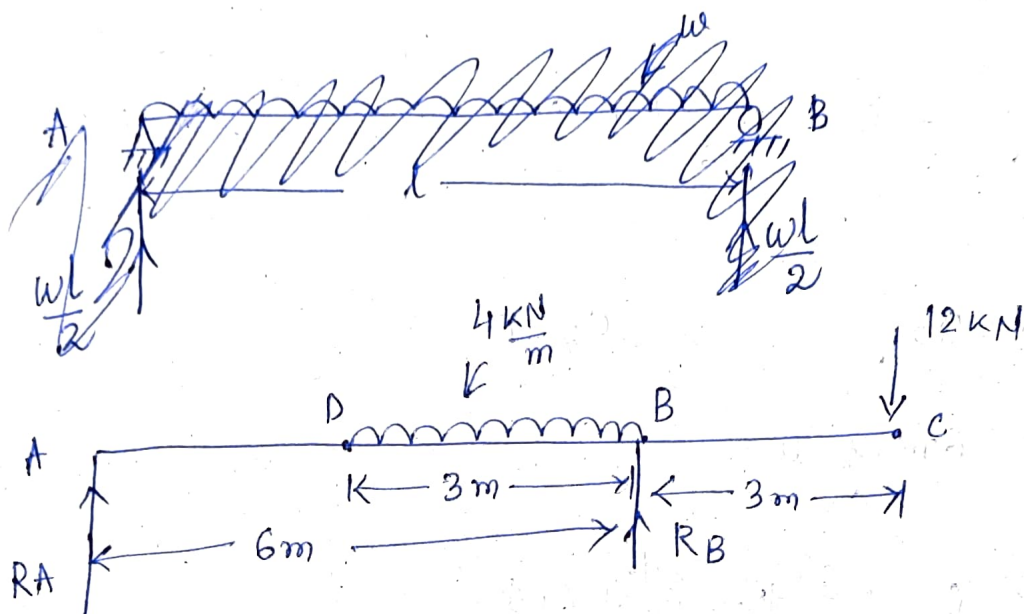 w
A B
l
wl/2 wl/2
4 KN/m
12 KN
D B
A C
3m 3m
6m
RA RB